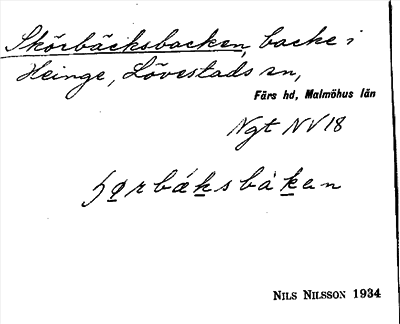 Skörbäcksbacken, backe i
Heinge, Lövestads sn,
Färs hd, Malmöhus län
Ngt NV 18
báksbàken
NILS NILSSON 1934